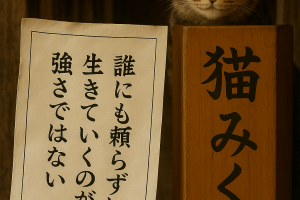 誰にも頼らず
生きていくのが
強さではない
猫みく